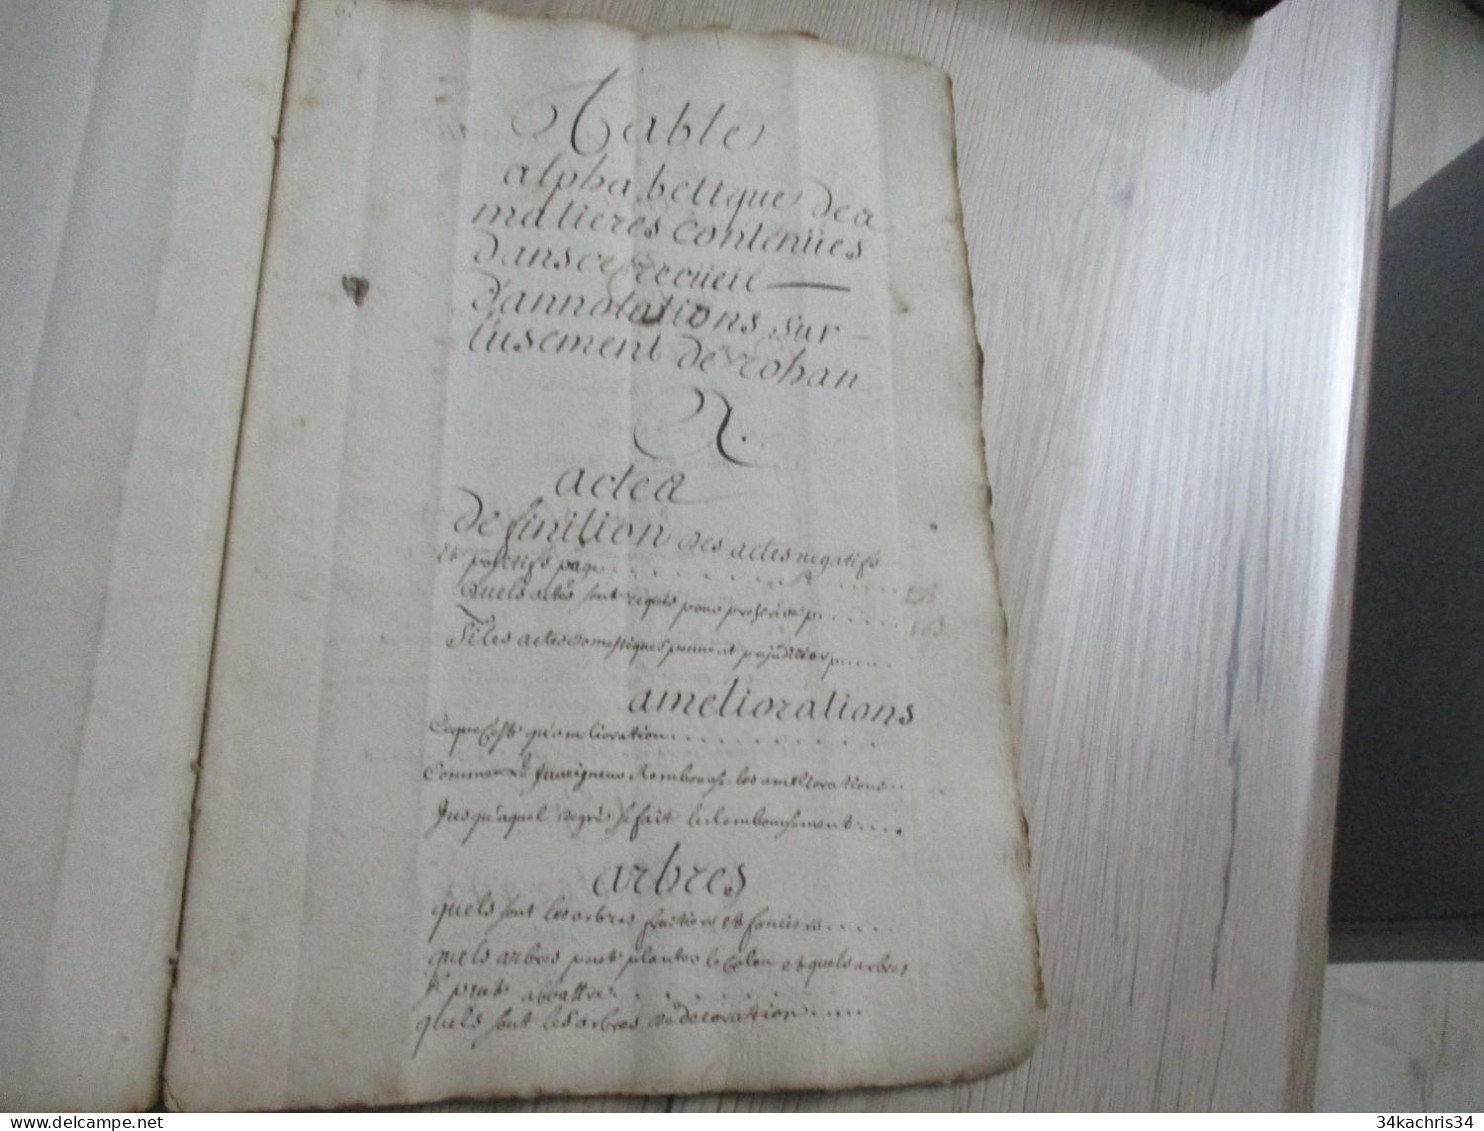 Table
alphabettque des
matieres contenües
dans ce recüeil
d'annotations sur
l'usement de rohan
A.
actes
definition des actes negatifs
et positifs page
Quels actes sont requis pour p
Si les actes domestiques peuvent prejuditier p
ameliorations
Ceque C'est qu'amelioration
Comme le seigneur Rembourse les ameliorations
Jusqu'aquel degré se fait le Remboursement
arbres
quels sont les arbres fruitiers et fonciers
quels arbres peut planter le Colon et quels arbres
il peut abattre
quels sont les arbres de decoration
delcampe.net
34kachris34